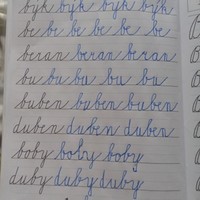 byk byk byk byk
be be be be be be
beran beran beran
bu bu bu bu bu
buben buben buben
duben duben duben
boby boby boby
duby duby duby